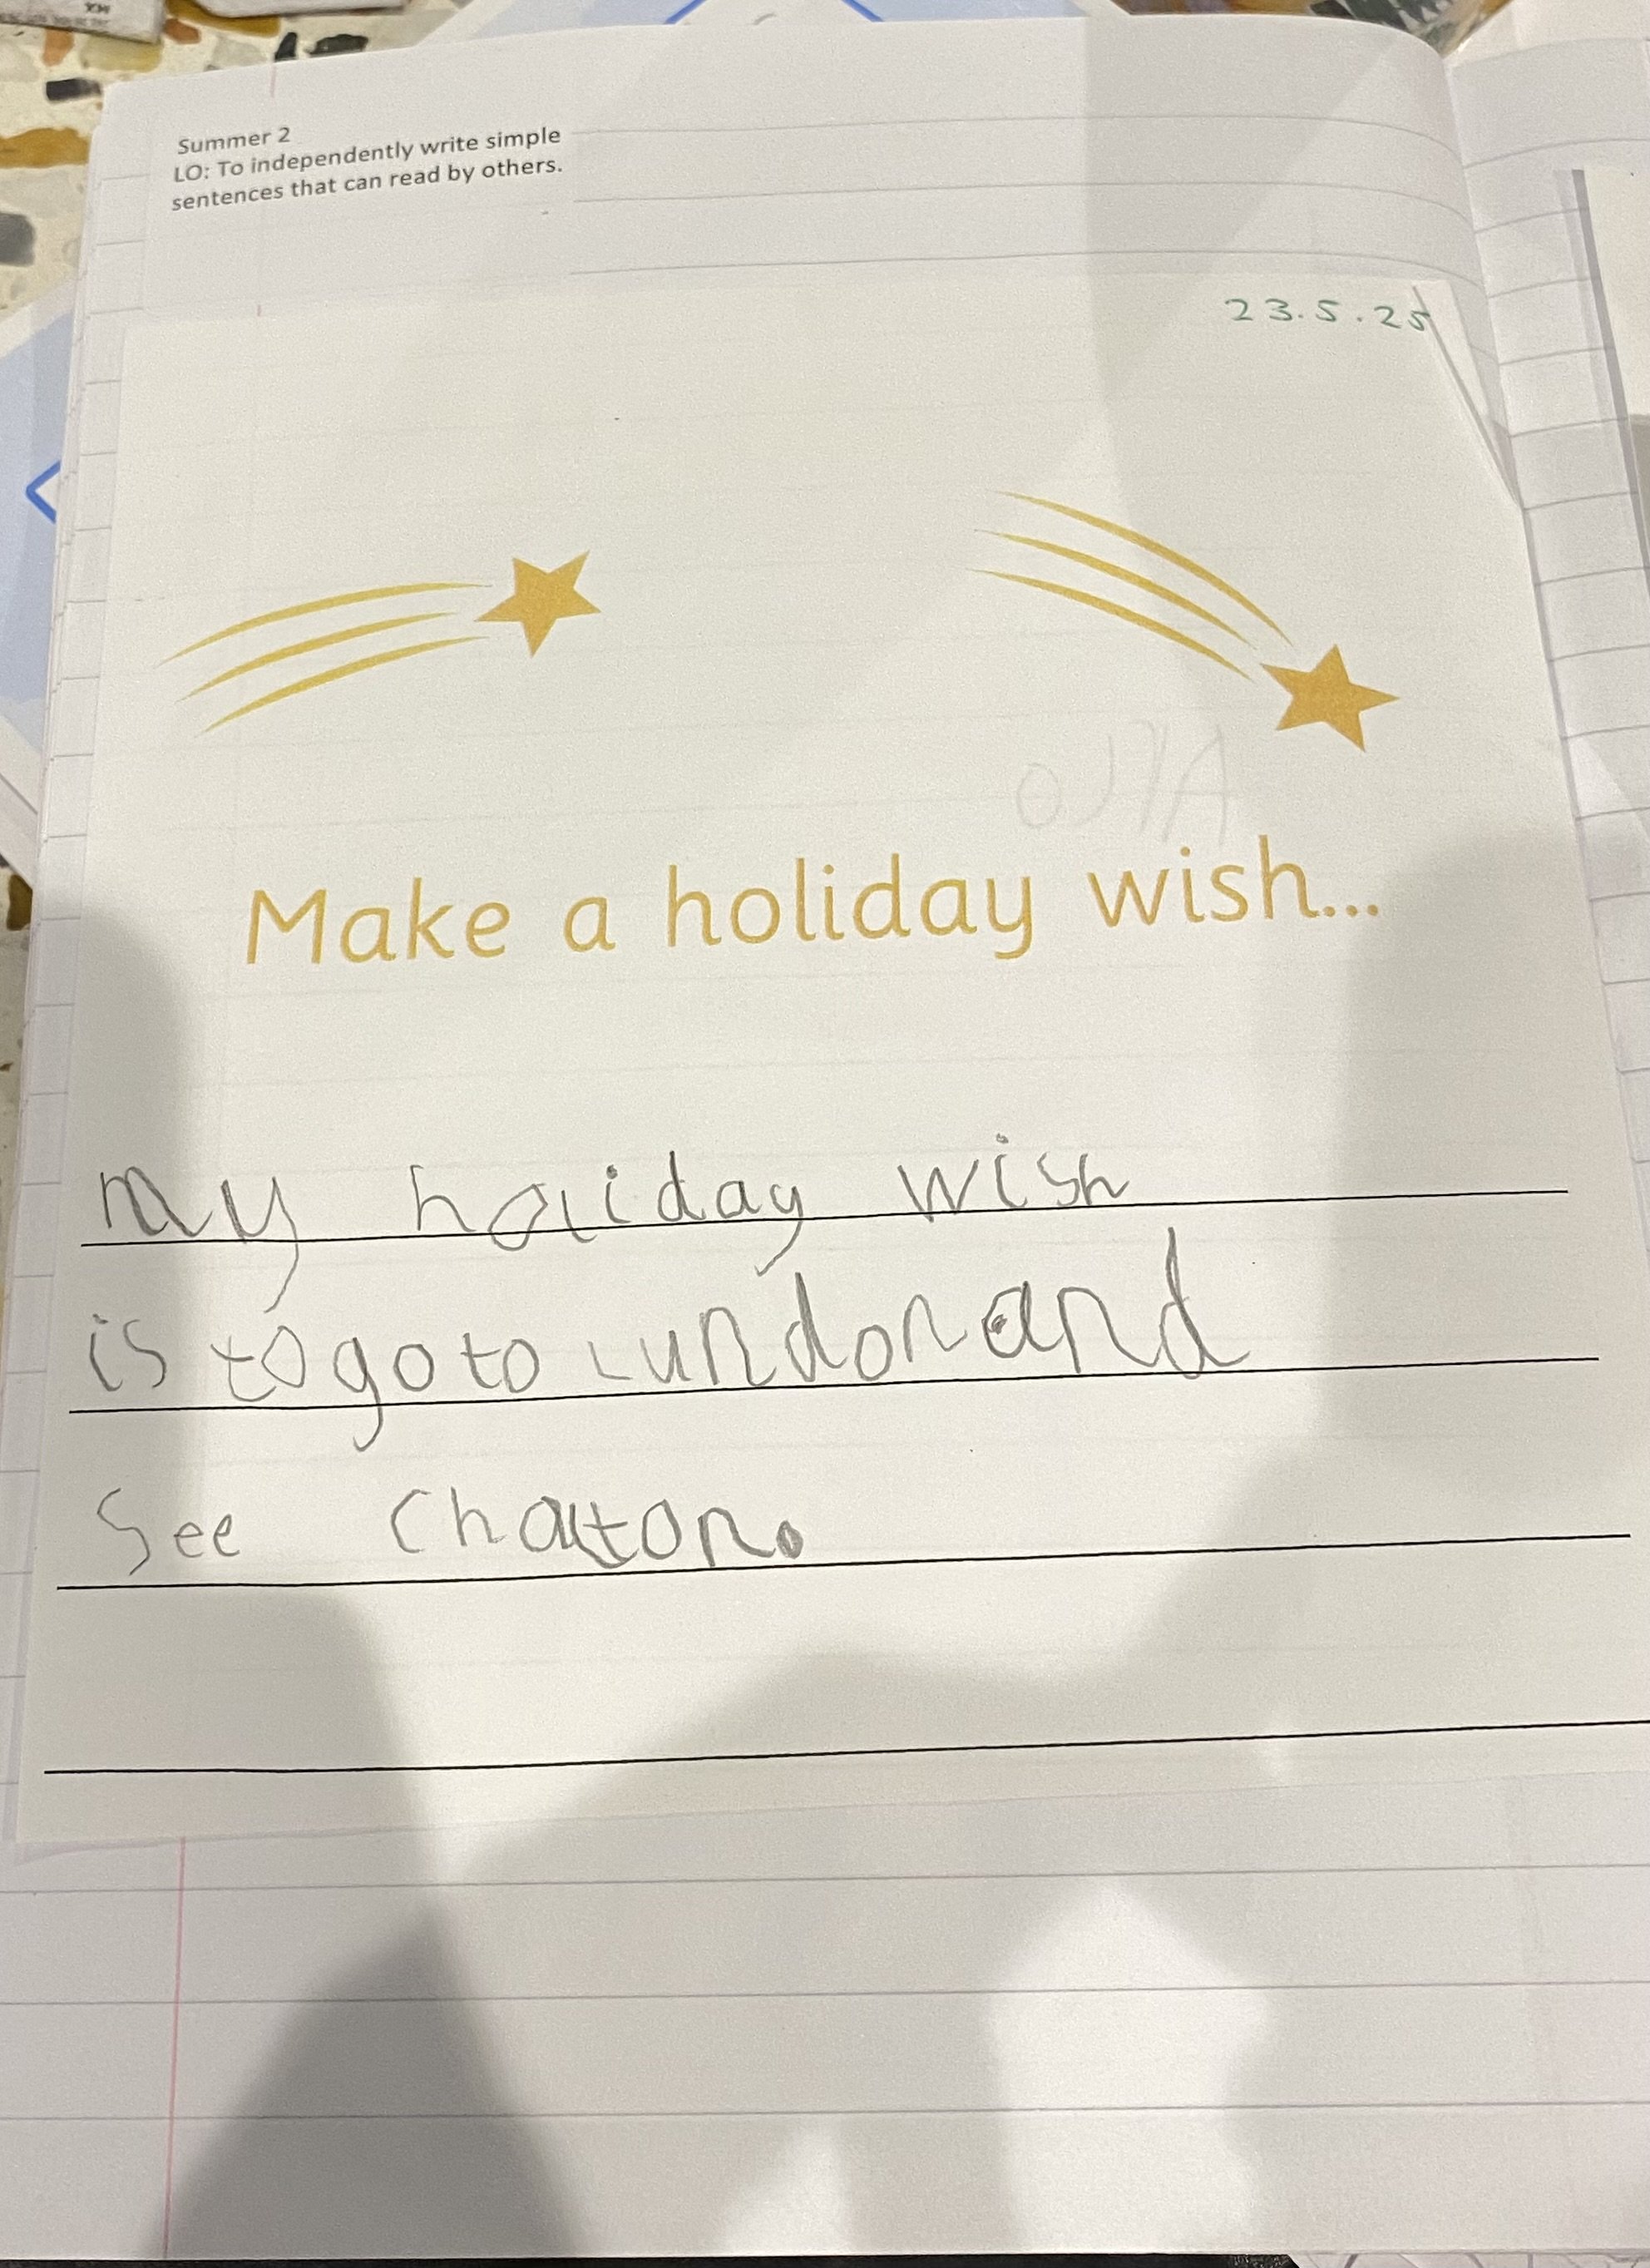 Summer 2
LO: To independently write simple
sentences that can read by others.
23.5.25
Make a holiday wish...
my holiday wish
is to go to Lundon and
See Chatton.